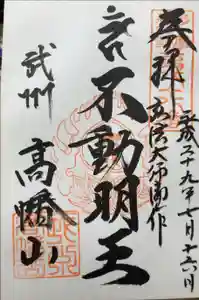 奉拝
平成二十九年七月十六日
弘法大師御作
不動明王
武州
高幡山